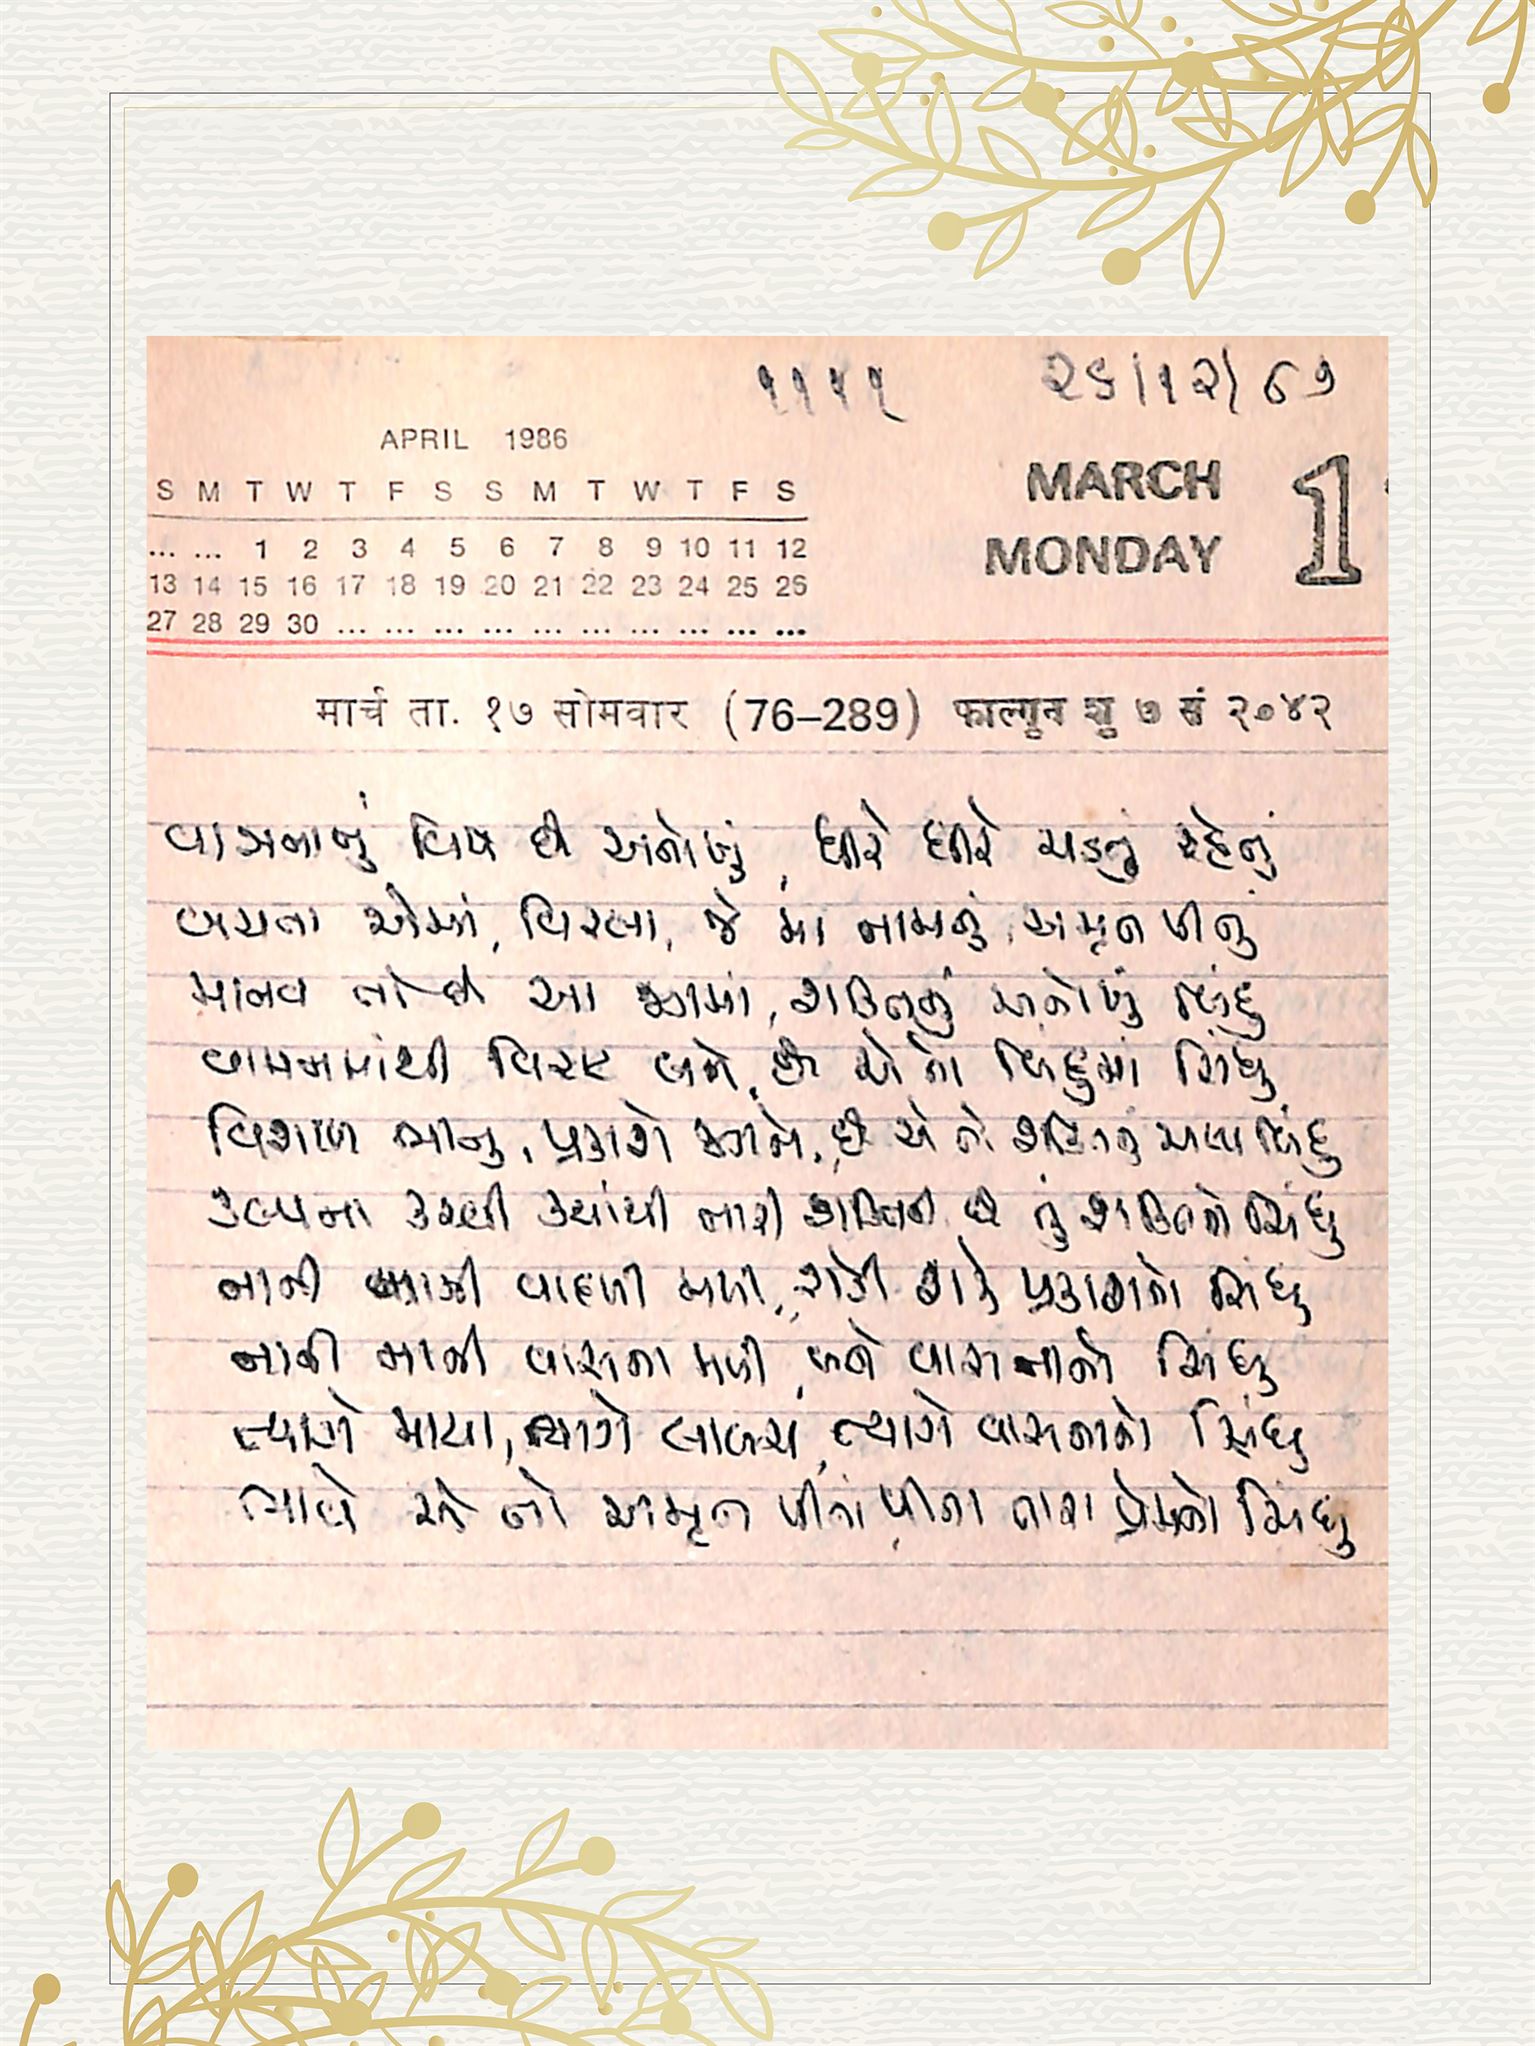 ૧૧૫૧ ૨૬/૧૨/૮૭
APRIL 1986
S M T W T F S S M T W T F S
... ... 1 2 3 4 5 6 7 8 9 10 11 12
13 14 15 16 17 18 19 20 21 22 23 24 25 26
27 28 29 30 ... ... ... ... ... ... ... ... ... ...
MARCH
MONDAY
1
मार्च ता. १७ सोमवार (76–289) फाल्गुन शु ७ सं २०४२
વાસનાનું વિષ છે અનોખું, ધીરે ધીરે ચડતું રહેતું
બચતા એમાં, વિરલા, જે મા નામનું અમૃત પીતું
માનવ તો છે આ જગમાં, શક્તિનું અનોખું બિંદુ
વામનમાંથી વિરાટ બને, છે એ તો બિંદુમાં સિંધુ
વિશાળ ભાનુ, પ્રકાશે જગને, છે એ તો શક્તિનું બિંદુ
કલ્પના કરવી ક્યાંથી તારી શક્તિની છે તું શક્તિનો સિંધુ
નાની નાની વાદળી મળી, રોકી શકે પ્રકાશનો સિંધુ
નાની નાની વાસના મળી, બને વાસનાનો સિંધુ
ત્યાગે માયા, ત્યાગે લાલચ, ત્યાગે વાસનાનો સિંધુ
ભાવે રહે તો અમૃત પીતાં પીતા તારા પ્રેમનો સિંધુ